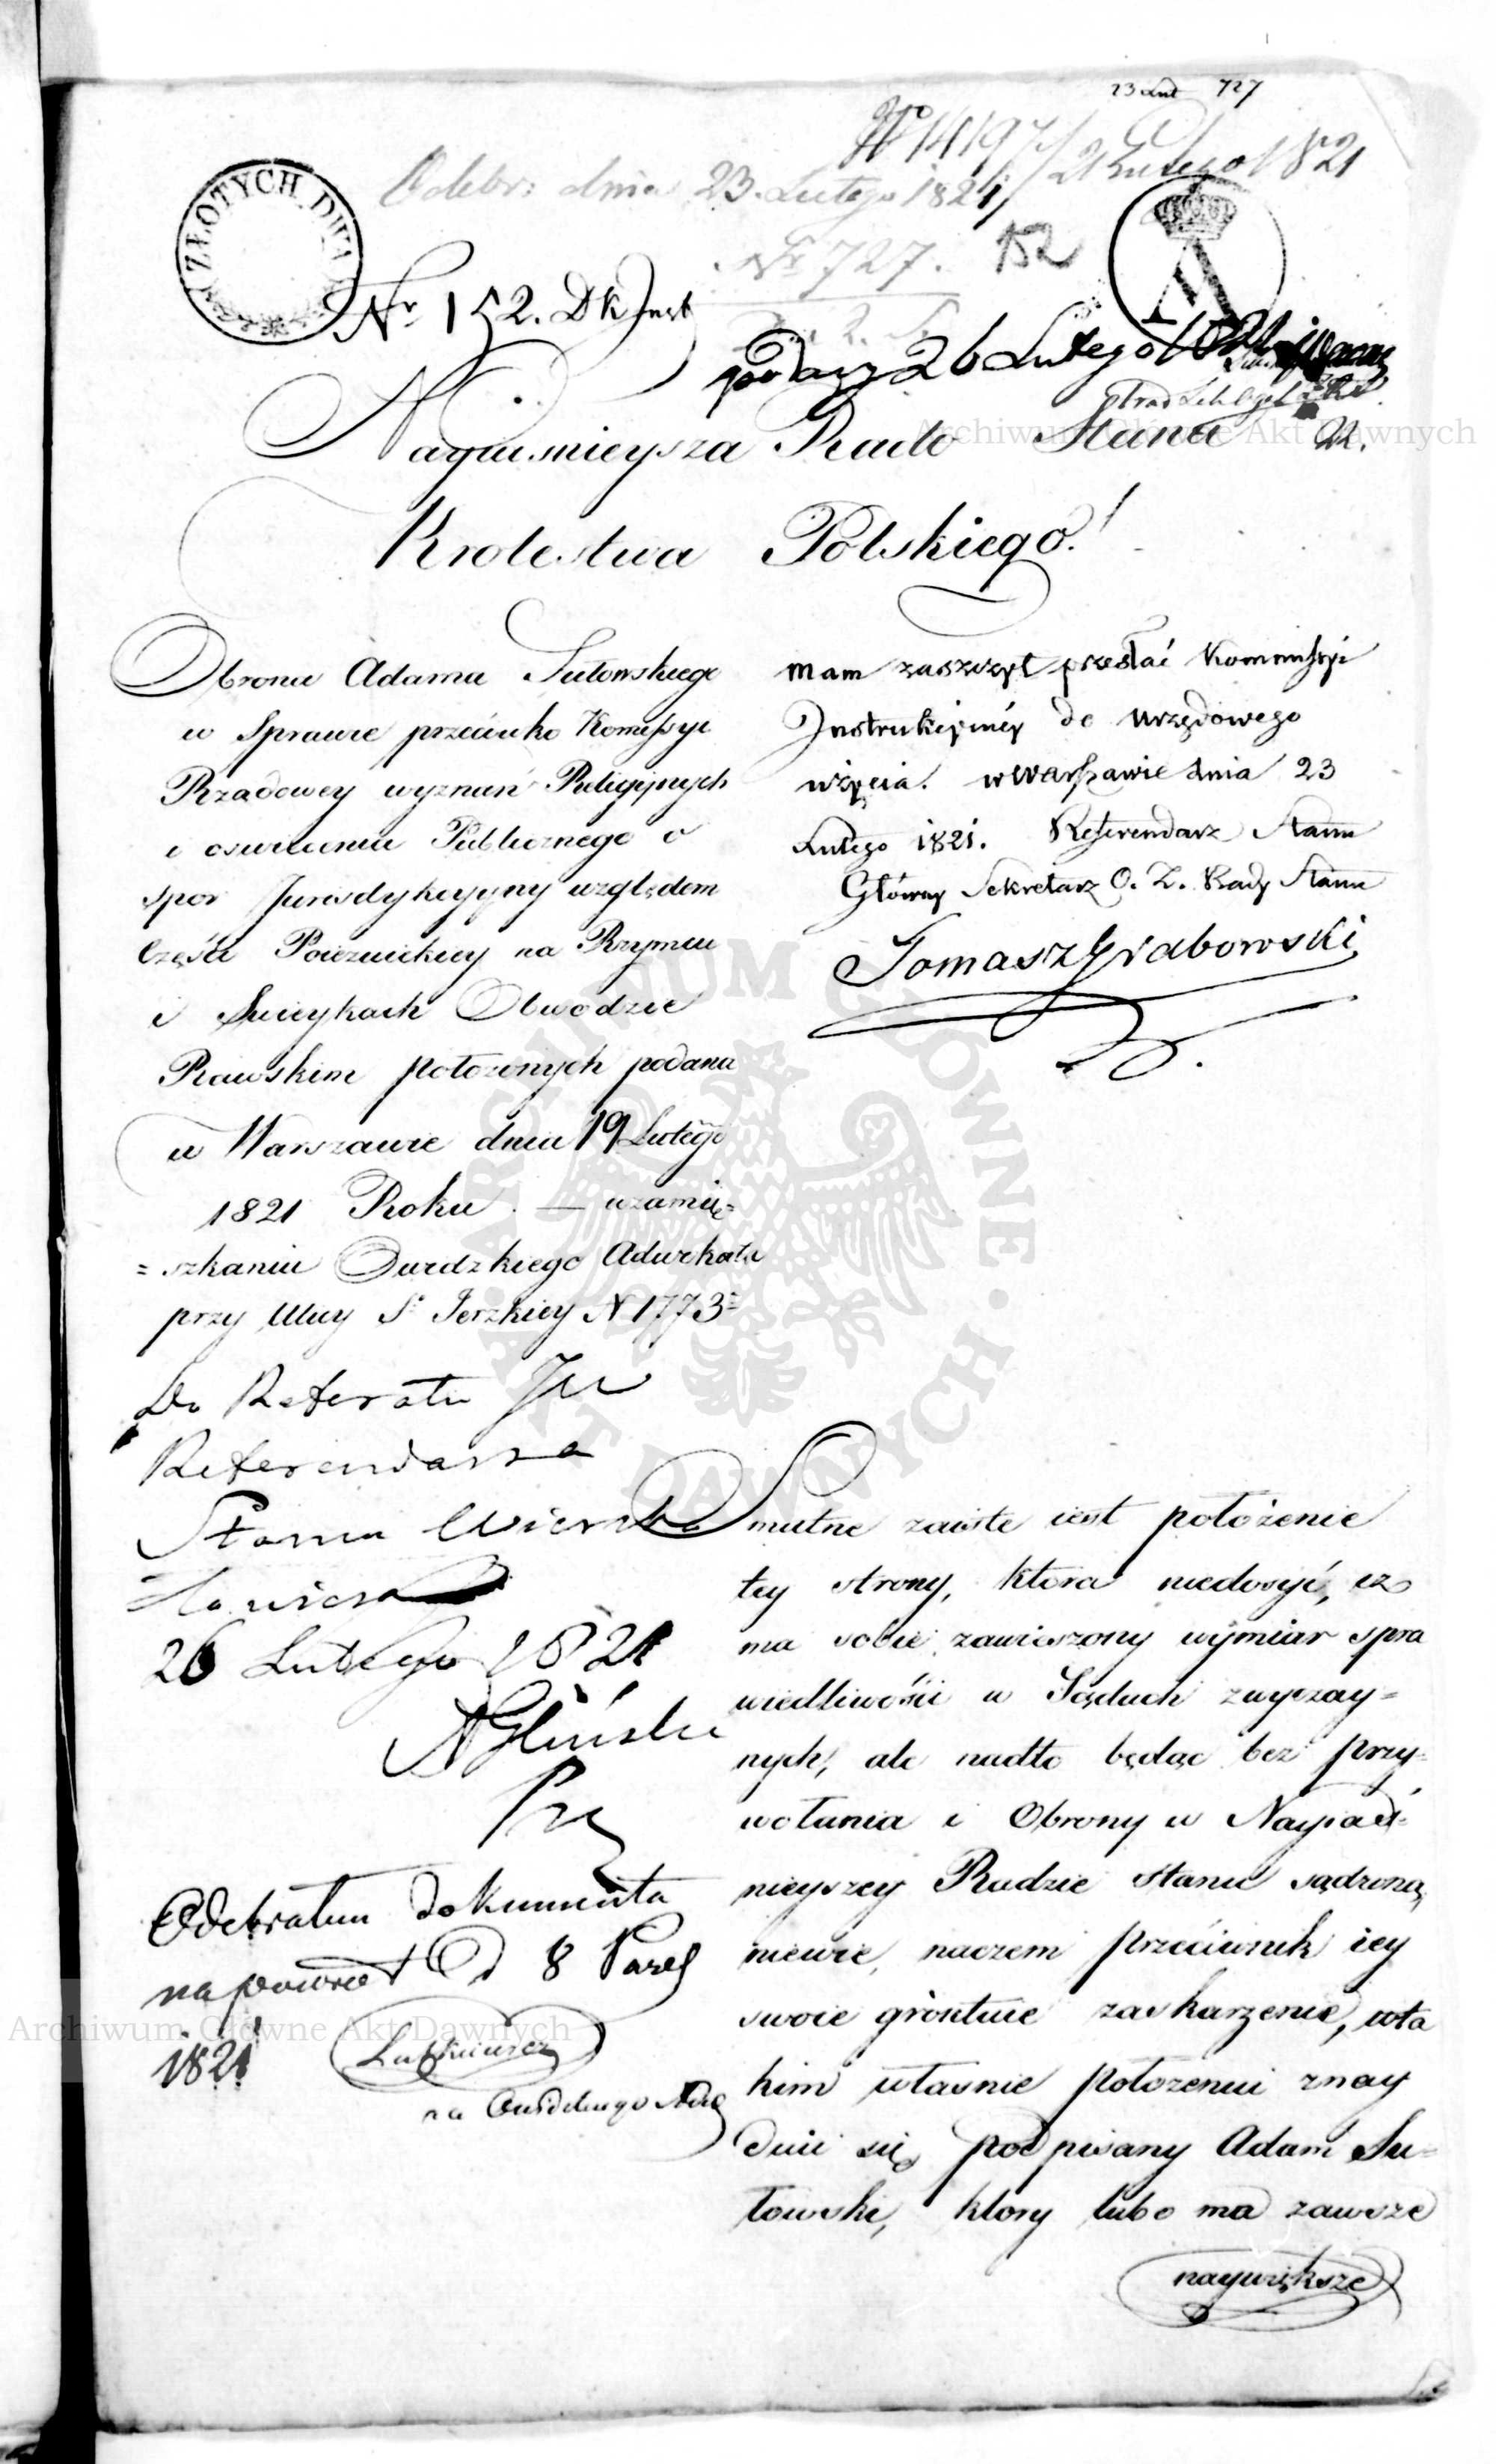 727
№ 14197/21 Lutego 1821
Odebr: dnia 23. Lutego 1821
ZŁOTYCH DWA
№ 727.
152
Nr 152. DK Inst
26 Lutego
Nayiasnieysza Rado Stanu
Krolestwa Polskiego!
Obrona Adama Sułowskiego
w Sprawie przeciwko Komissyi
Rządowey wyznań Religijnych
i oswiecenia Publicznego o
spor Jurisdykcyyny względem
Części Poiezuickiey na Rzymcu
i Obwodzie
Rawskim położonych podana
w Warszawie dnia 19 Lutego
1821 Roku. — w zamie=
=szkaniu Adwokata
przy Ulicy St Jerzkiey N 1773=
mam zaszczyt przesłać Kommissyi
Instrukcyiney do urzędowego
użycia. w Warszawie dnia 23
Lutego 1821. Referendarz Stanu
Główny Sekretarz O. Z. Rady Stanu
Tomasz Grabowski
Do Referatu JW
Referendarza
Stanu
26 Lutego 1821
AGliński
Odebrałem dokumenta
na powrót D 8
1821
na
Smutne zaiste iest położenie
tey strony, ktora niedosyć, iż
ma sobie zawieszony wymiar spra
wiedliwości w Sądach zwyczay=
nych, ale nadto będąc bez przy=
wołania i Obrony w Nayiaś=
nieyszey Radzie Stanu sądzoną,
niewie, naczem przeciwnik iey
swoie gróntuie zaskarzenie, w ta
kim własnie położeniu znay
duie się podpisany Adam Su=
łowski, ktory lubo ma zawsze
naywiększe
Archiwum Główne Akt Dawnych
Archiwum Główne Akt Dawnych
ARCHIWUM GŁÓWNE · AKT DAWNYCH ·